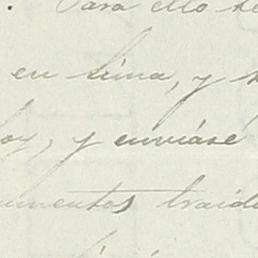 . Para ello he
en Lima, y
hoy, y envíase
umentos traído